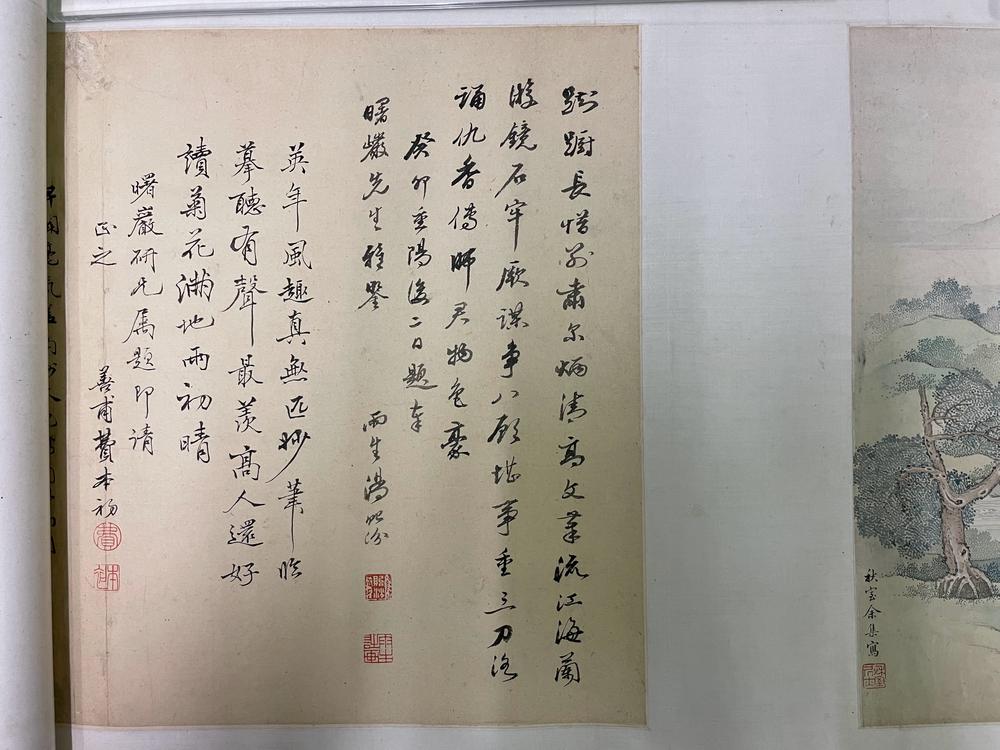 秋室余集寫
踟蹰長惜別肅尔炳清高文流江海蘭
游鏡石牢厥謀事八顧堪事重三刀治
誦仇香傳師君物色豪
癸卯重陽後二日題奉
曙巖先生雅鑒
雨生湯貽汾
英年風趣真無匹妙筆臨
摹聽有聲最羨高人還好
讀菊花滿地雨初晴
曙巖研兄属題即請
正之
善甫費本初